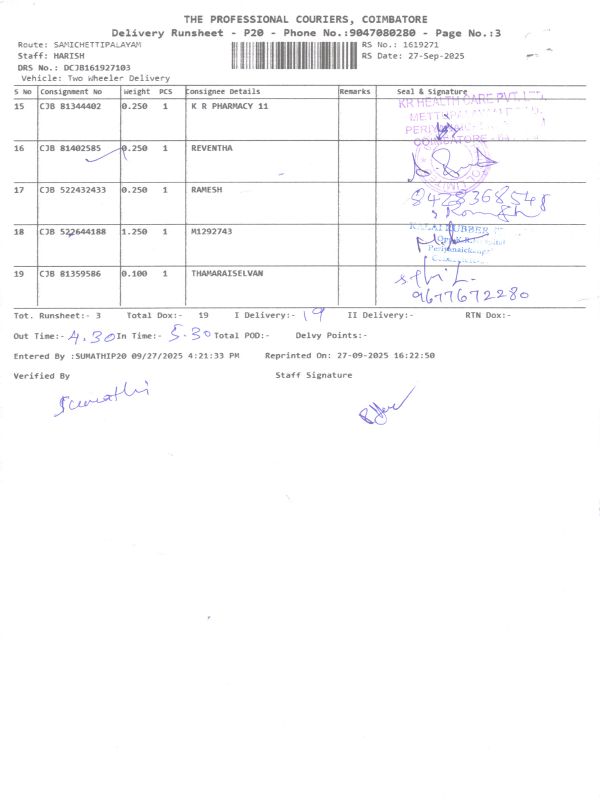 THE PROFESSIONAL COURIERS, COIMBATORE
Delivery Runsheet - P20 - Phone No.:9047080280 - Page No.:3
Route: SAMICHETTIPALAYAM RS No.: 1619271
Staff: HARISH RS Date: 27-Sep-2025
DRS No.: DCJB161927103
Vehicle: Two Wheeler Delivery
S No Consignment No Weight PCS Consignee Details Remarks Seal & Signature
15 CJB 81344402 0.250 1 K R PHARMACY 11
KR HEALTH CARE PVT. LTD.
COIMBATORE
16 CJB 81402585 0.250 1 REVENTHA
17 CJB 522432433 0.250 1 RAMESH
8428368548
18 CJB 522644188 1.250 1 M1292743
RUBBER
19 CJB 81359586 0.100 1 THAMARAISELVAN
9677672280
Tot. Runsheet:- 3 Total Dox:- 19 I Delivery:- 19 II Delivery:- RTN Dox:-
Out Time:- 4.30 In Time:- 5.30 Total POD:- Delvy Points:-
Entered By :SUMATHIP20 09/27/2025 4:21:33 PM Reprinted On: 27-09-2025 16:22:50
Verified By Staff Signature
Sumathi